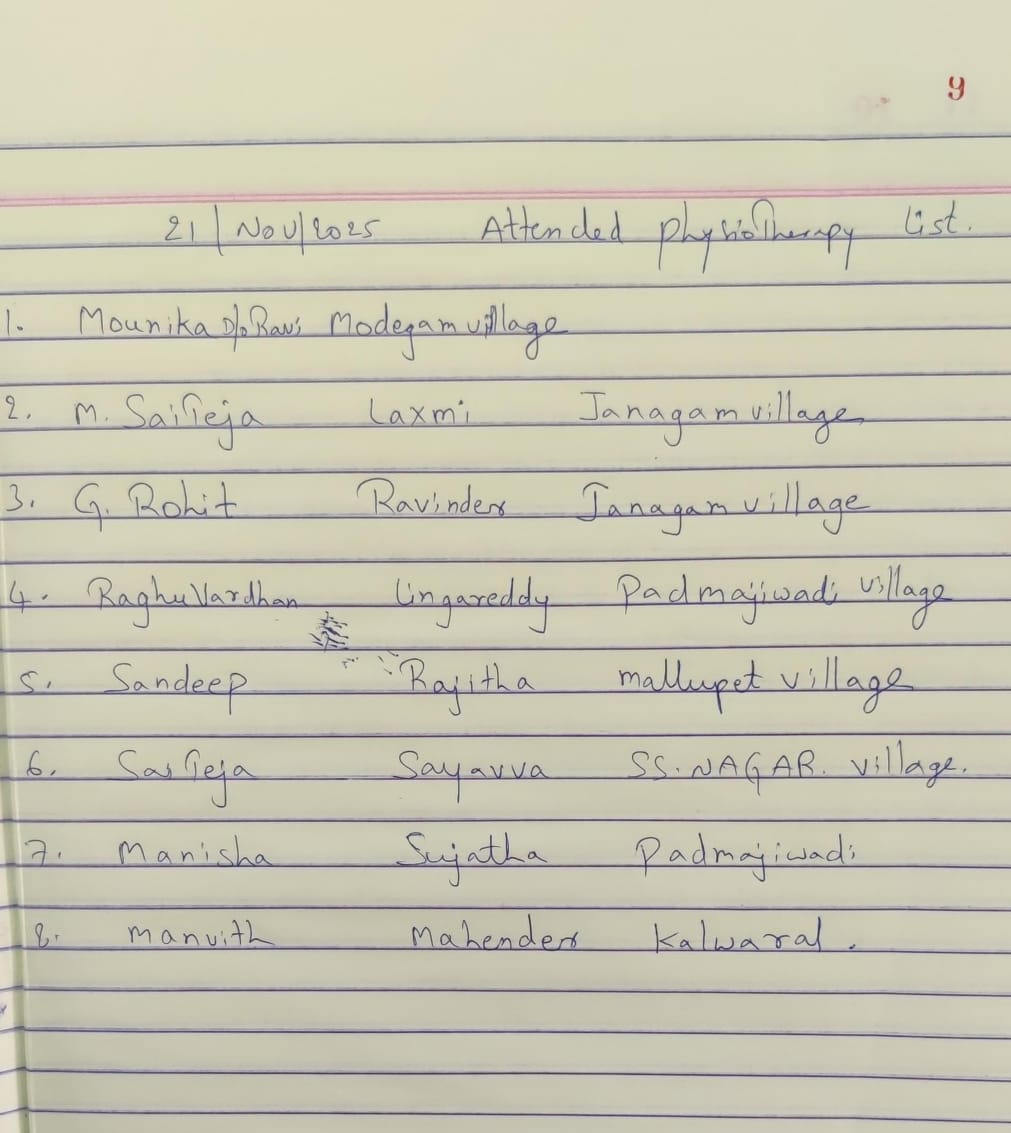 9
21/Nov/2025 Attended physioTherapy List.
1. Mounika D/o Ravi Modegam village
2. M. SaiTeja Laxmi Janagam village
3. G. Rohit Ravinder Janagam village
4. RaghuVardhan Lingareddy Padmajiwadi village
5. Sandeep Rajitha mallupet village
6. Sai Teja Sayavva SS.NAGAR. village.
7. Manisha Sujatha Padmajiwadi
8. manvith Mahender Kalwaral.